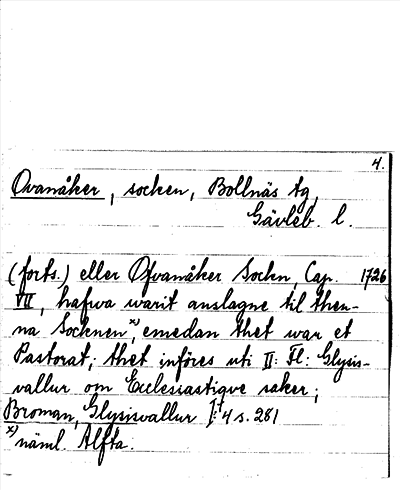 4.
Ovanåker, socken, Bollnäs tg,
Gävleb. l.
(forts.) eller Ofvanåker Sockn, Cap. 1726
VII, hafwa warit anslagne til then-
na Socknen x), emedan thet war et
Pastorat; thet införes uti II: Fl: Glysis-
vallur om Ecclesiastiqve saker;
Broman, Glysisvallur s. 281
x) näml. Alfta.